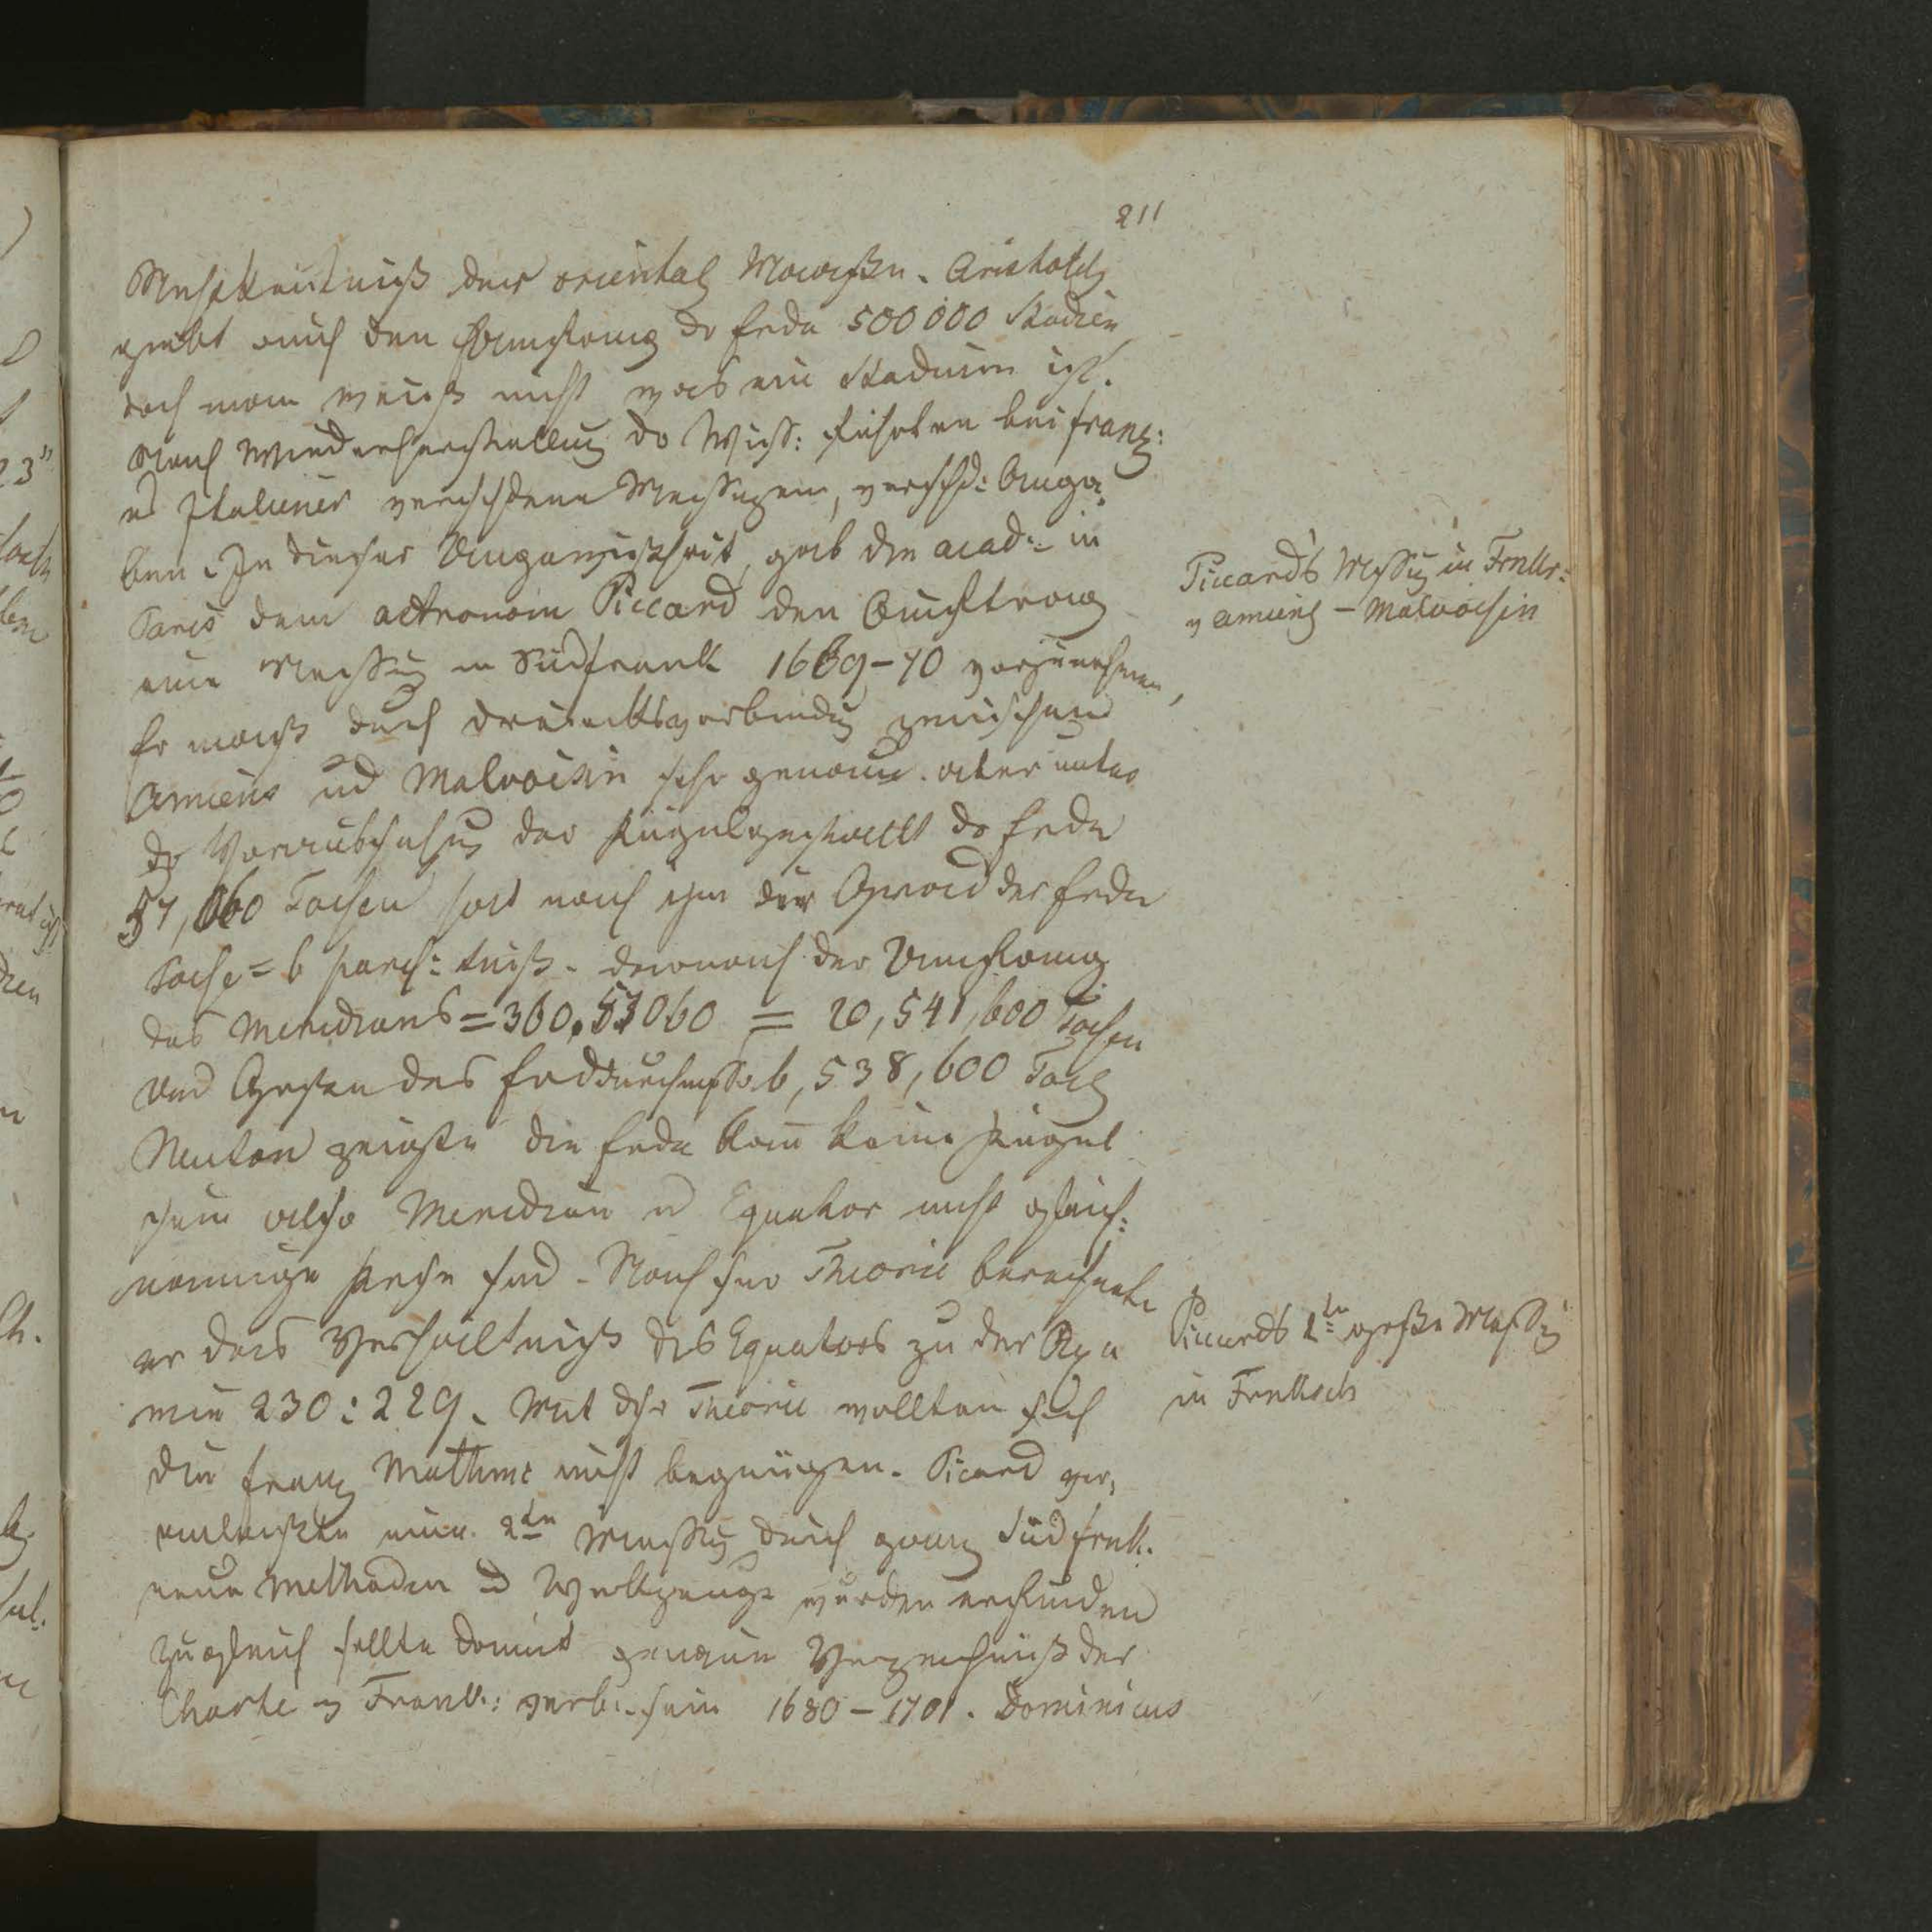 211
der oriental Maaßen. Aristotels
giebt auch den Umfang der Erde 500000 Stadien
doch man weiß nicht was ein Stadium ist.
Nach Wiederherstellung der Wiss: führten bei franz:
ud Italiener verschiedene Messungen, verschd: Anga¬
ben. In dieser Ungewißheit, gab die acad: in
Paris dem astronom Piccard den Auftrag
eine Messung in Südfrank 1669-70 vorzunehmen,
Piccard's Messug in Frnkr:
v amiens – Malvoisin
Er maß durch dreiecksverbindug zwischen
Amiens ud Malvoisin sehr genau. aber unter
der Voraussetzug der Kugelgestallt der Erde
57,060 Toisen hat nach ihm der Grad der Erde
Toise = 6 paris: darnach der Umfang
des Meridians = 360.57060 = 20,541,600 Toisen
und Größe des Erddurchmessers 6,538,600 Tois
Neuton zeigte die Erde kan keine Kugel
sein also Meridian ud Equator nicht gleich:
namige Kreise sind. Nach sr Theorie berechnete
er das Verhältniß des Equators zu der Axe
wie 230:229. Mit dsr Theorie wollten sich
Piccards 2te große Messug
in Frnkrch
die franz Mathmt nicht begnügen. Picard ver¬
anlaßte eine 2te Messug durch ganz Südfrnk.
neue Methoden ud Werkzeuge wurden erfunden
zugleich sollte damit genaue Verzeichniß der
Charte v Frank: verb: sein 1680-1701. Dominicus